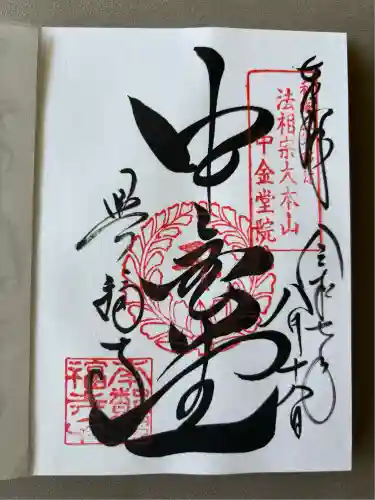 奉拝
令和七年
八月十八日
法相宗大本山
中金堂院
中金堂
興福寺